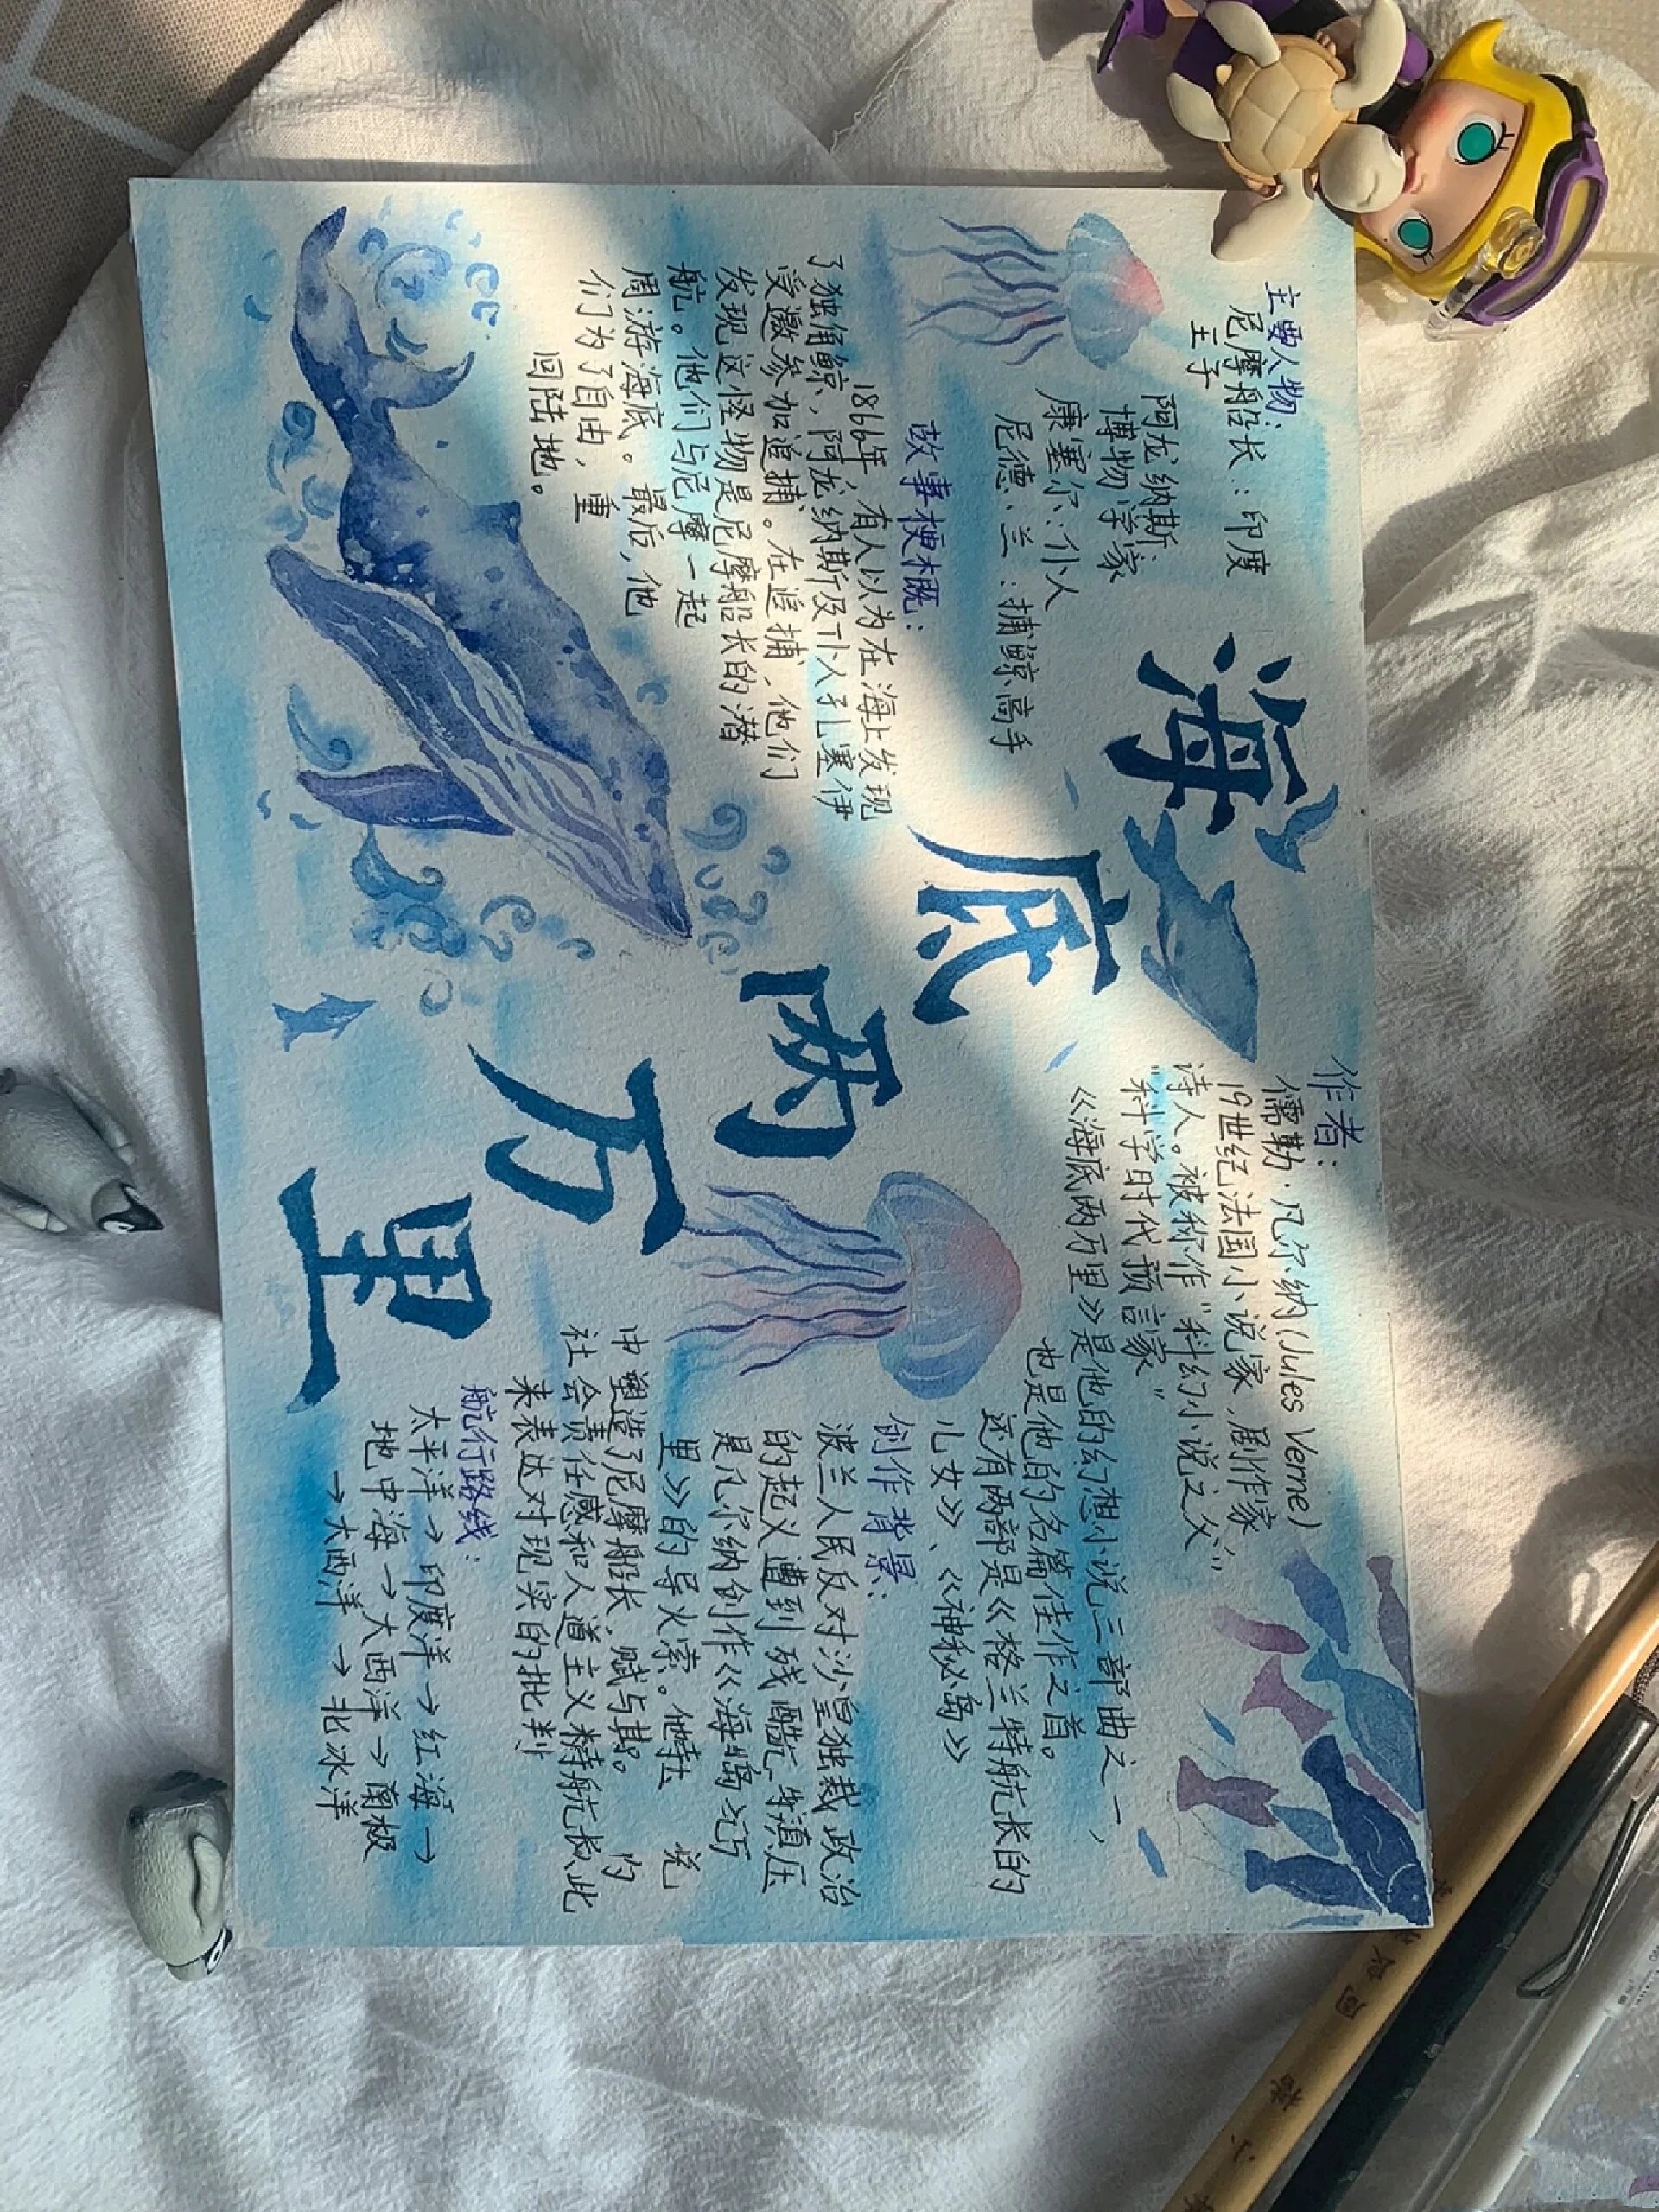 海底两万里
主要人物：
尼摩船长：印度
王子
阿龙纳斯：
博物学家
康塞尔：仆人
尼德·兰：捕鲸高手
故事梗概：
1866年，有人以为在海上发现
了独角鲸，阿龙纳斯及仆人孔塞伊
受邀参加追捕。在追捕，他们
发现这怪物是尼摩船长的潜
航。他们与尼摩一起
周游海底。最后，他
们为了自由，重
回陆地。
作者：
儒勒·凡尔纳(Jules Verne)
19世纪法国小说家，剧作家，
诗人。被称作“科幻小说之父”
“科学时代预言家”
《海底两万里》是他的幻想小说三部曲之一，
也是他的名篇佳作之首。
还有两部是《格兰特航长的
儿女》、《神秘岛》
创作背景：
波兰人民反对沙皇独裁政治
的起义遭到残酷镇压
是凡尔纳创作《海
里》的导火索。他
中塑造了尼摩船长，赋与其
社会责任感和人道主义精
来表达对现实的批判
航行路线：
太平洋→印度洋→红海→
地中海→大西洋→南极
→大西洋→北冰洋